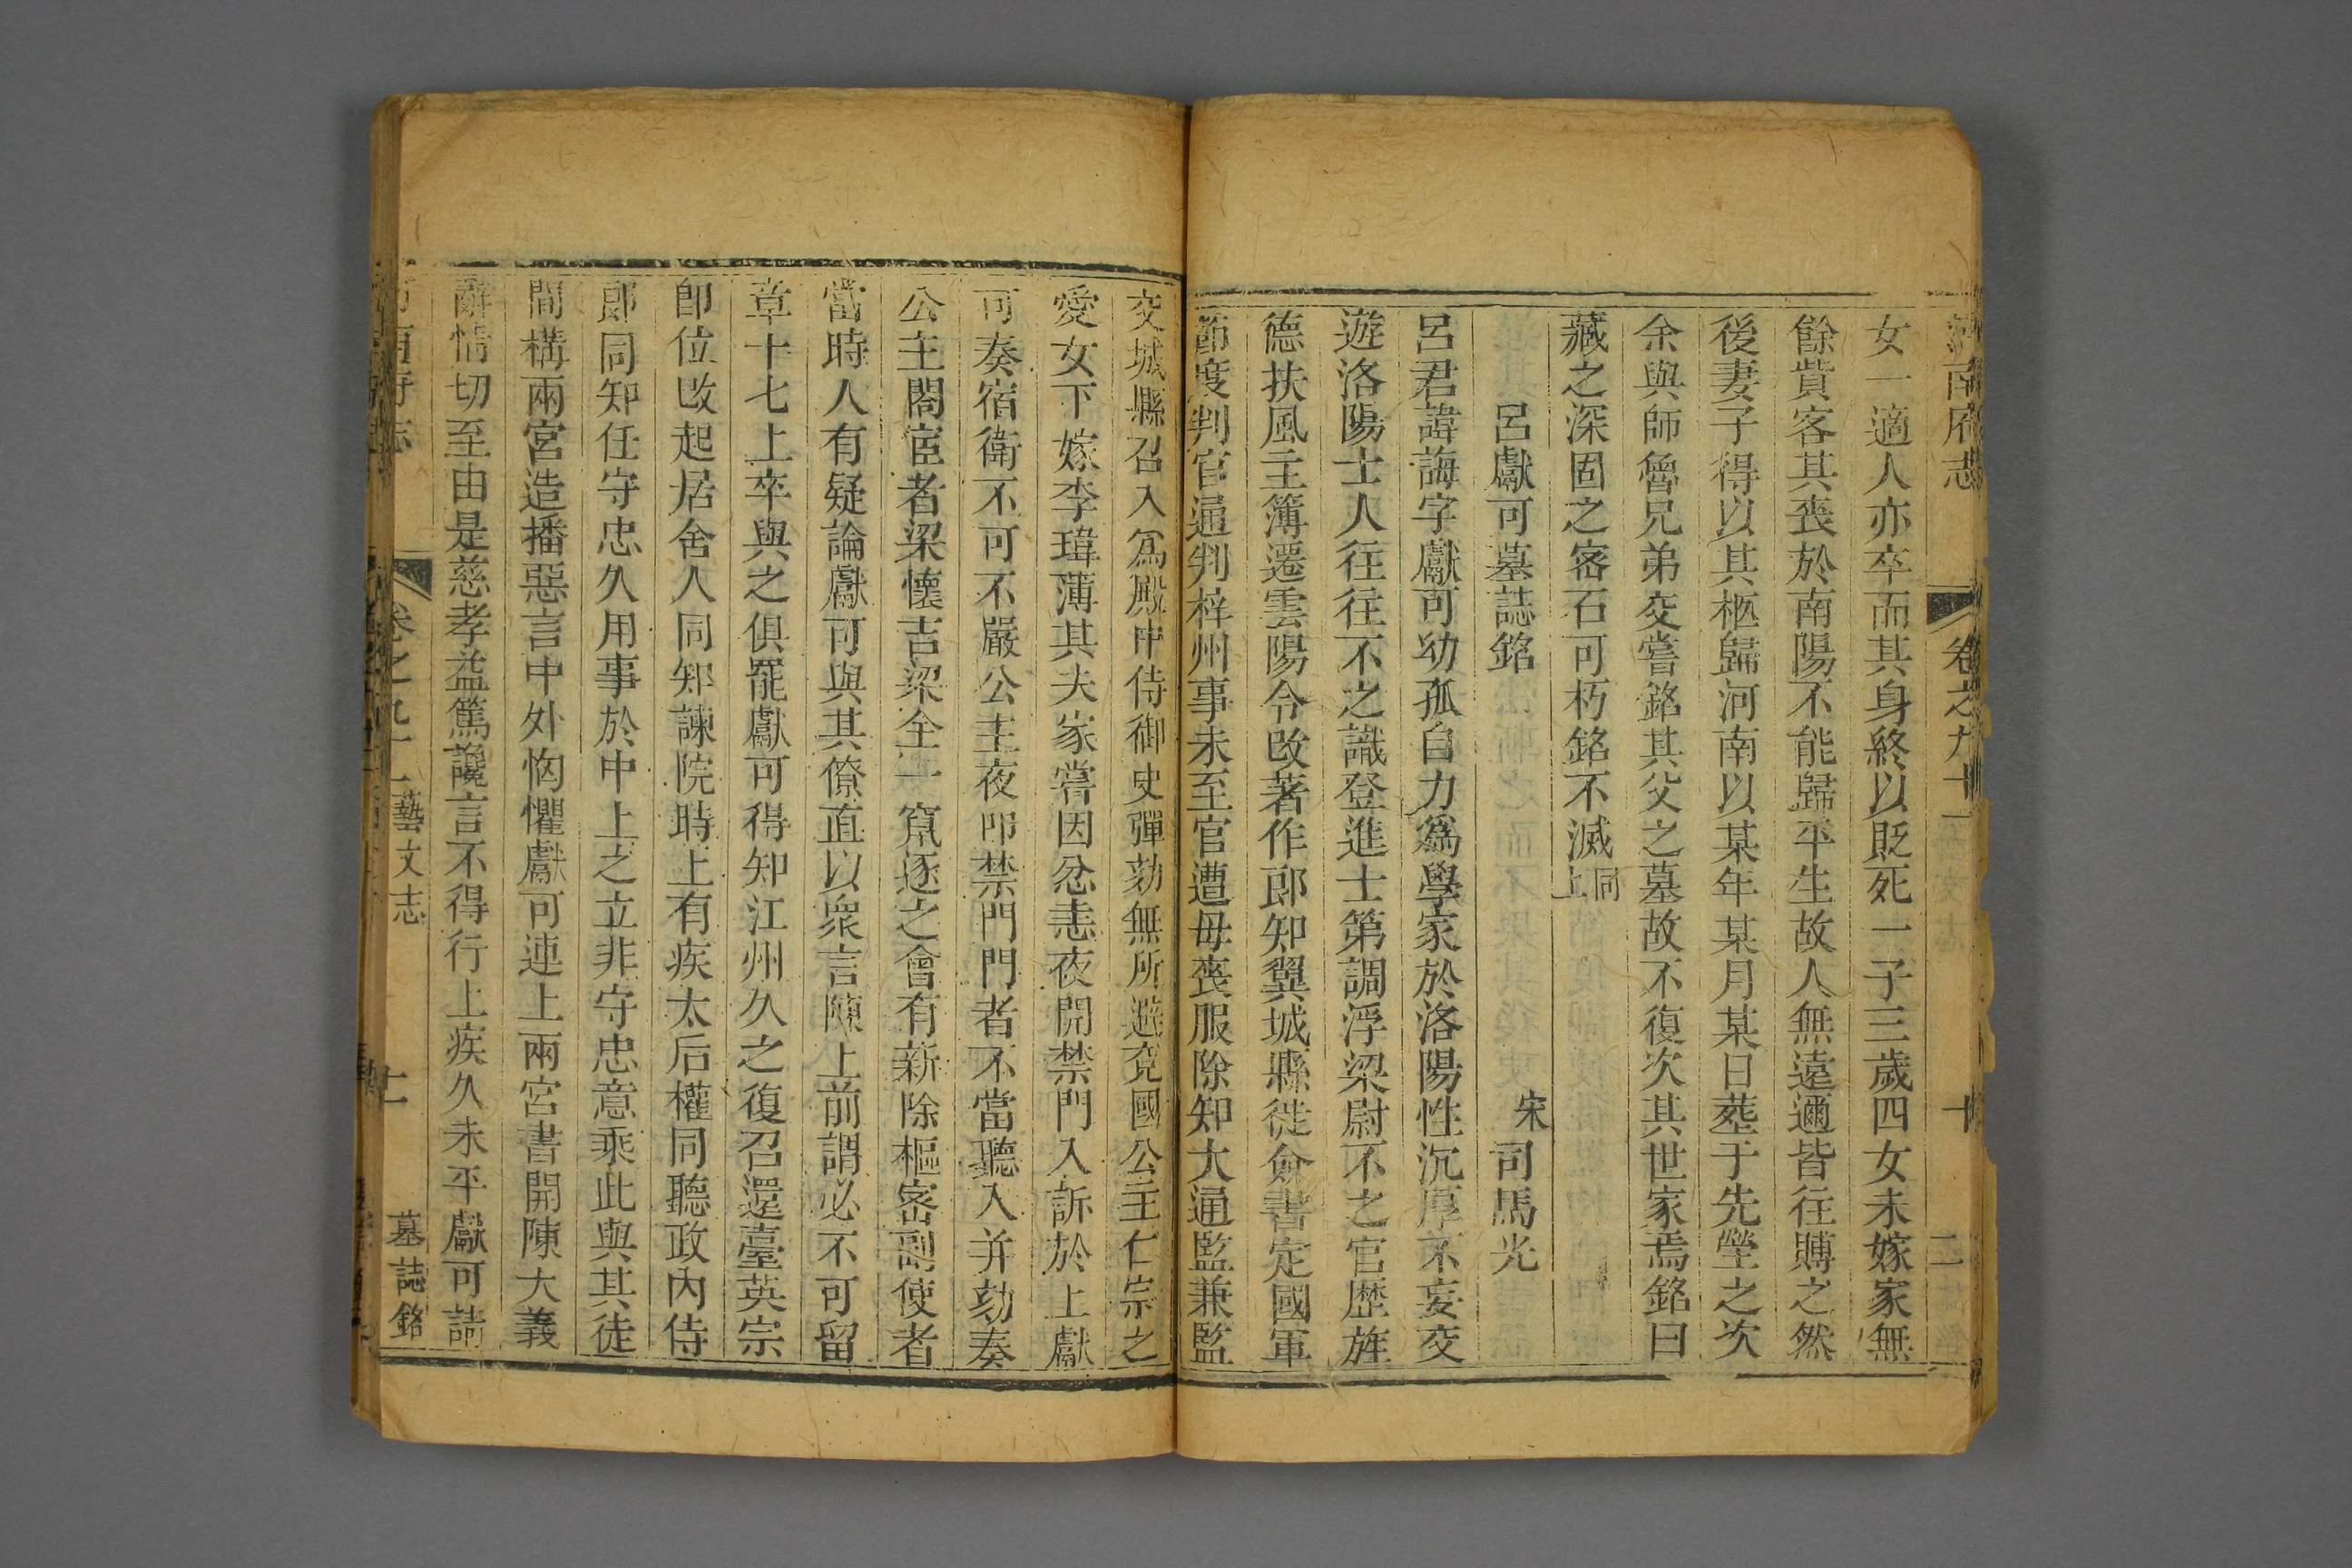 河南府志 卷之九十一 十
女一適人亦卒而其身終以貶死一子三歲四女未嫁家無
餘貲客其喪於南陽不能歸平生故人無遠邇皆往賻之然
後妻子得以其柩歸河南以某年某月某日葬于先塋之次
余與師魯兄弟交嘗銘其父之墓故不復次其世家焉銘曰
藏之深固之密石可朽銘不滅同上
呂獻可墓誌銘 宋司馬光
呂君諱誨字獻可幼孤自力爲學家於洛陽性沉厚不妄交
遊洛陽士人往往不之識登進士第調浮梁尉不之官歷旌
德扶風主簿遷雲陽令改著作郎知翼城縣徙僉書定國軍
節度判官通判梓州事未至官遭母喪服除知大通監兼監
交城縣召入爲殿中侍御史彈劾無所避兗國公主仁宗之
愛女下嫁李瑋薄其夫家嘗因忿恚夜開禁門入訴於上獻
可奏宿衛不可不嚴公主夜叩禁門門者不當聽入并劾奏
公主閤宦者梁懷吉梁全一竄逐之會有新除樞密副使者
當時人有疑論獻可與其僚直以衆言陳上前謂必不可留
章十七上卒與之俱罷獻可得知江州久之復召還臺英宗
卽位改起居舍人同知諫院時上有疾太后權同聽政內侍
郎同知任守忠久用事於中上之立非守忠意乘此與其徒
間構兩宮造播惡言中外恟懼獻可連上兩宮書開陳大義
辭情切至由是慈孝益篤讒言不得行上疾久未平獻可請
卷之九十一 藝文志 墓誌銘